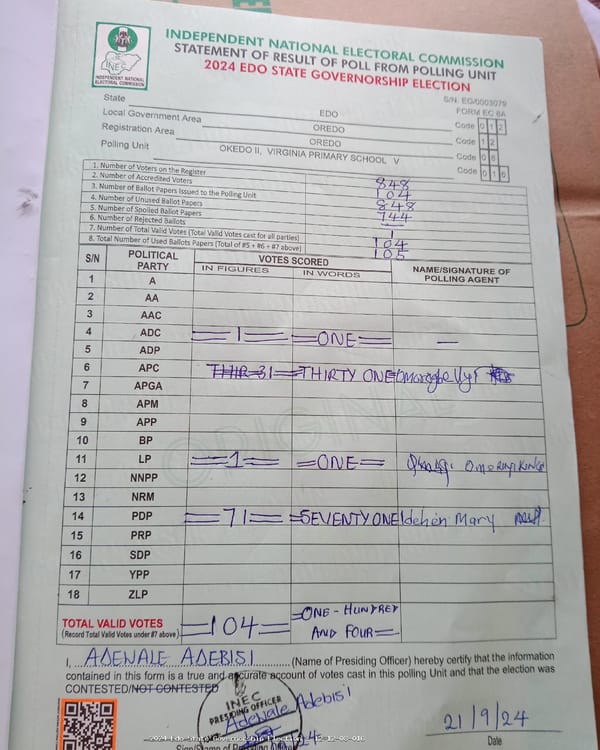 INDEPENDENT NATIONAL ELECTORAL COMMISSION
STATEMENT OF RESULT OF POLL FROM POLLING UNIT
2024 EDO STATE GOVERNORSHIP ELECTION
INEC
INDEPENDENT NATIONAL
ELECTORAL COMMISSION
S/N: EG/0003079
FORM EC 8A
State EDO Code 0 1 2
Local Government Area OREDO Code 1 2
Registration Area OREDO Code 0 8
Polling Unit OKEDO II, VIRGINIA PRIMARY SCHOOL V Code 0 1 6
1. Number of Voters on the Register 848
2. Number of Accredited Voters 104
3. Number of Ballot Papers Issued to the Polling Unit 848
4. Number of Unused Ballot Papers 744
5. Number of Spoiled Ballot Papers
6. Number of Rejected Ballots 1
7. Number of Total Valid Votes (Total Valid Votes cast for all parties) 104
8. Total Number of Used Ballots Papers (Total of #5 + #6 + #7 above) 105
S/N POLITICAL PARTY VOTES SCORED NAME/SIGNATURE OF POLLING AGENT
IN FIGURES IN WORDS
1 A
2 AA
3 AAC
4 ADC 1 ONE
5 ADP
6 APC 31 THIRTY ONE
7 APGA
8 APM
9 APP
10 BP
11 LP 1 ONE
12 NNPP
13 NRM
14 PDP 71 SEVENTY ONE Idehen Mary
15 PRP
16 SDP
17 YPP
18 ZLP
ORIGINAL
TOTAL VALID VOTES 104 ONE - HUNDRED
(Record Total Valid Votes under #7 above) AND FOUR
I, ADENALE ADEBISI (Name of Presiding Officer) hereby certify that the information
contained in this form is a true and accurate account of votes cast in this polling Unit and that the election was
CONTESTED/NOT CONTESTED
INEC
PRESIDING OFFICER
Adenale Adebisi
21/9/24
Date